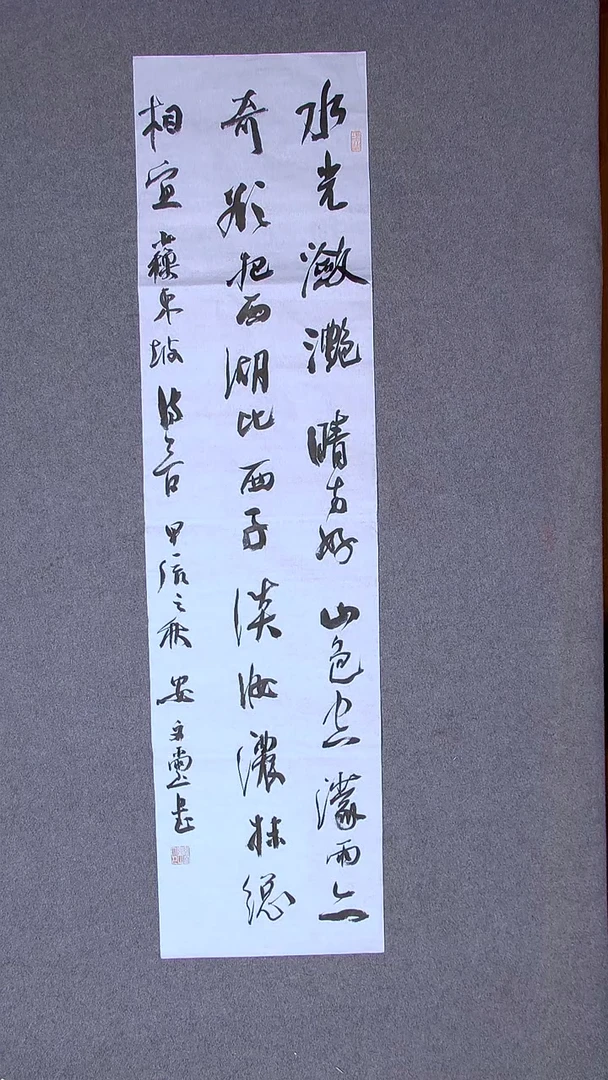 水光潋滟晴方好山色空濛雨亦
奇欲把西湖比西子淡妆浓抹总
相宜 苏东坡诗一首 甲辰之秋